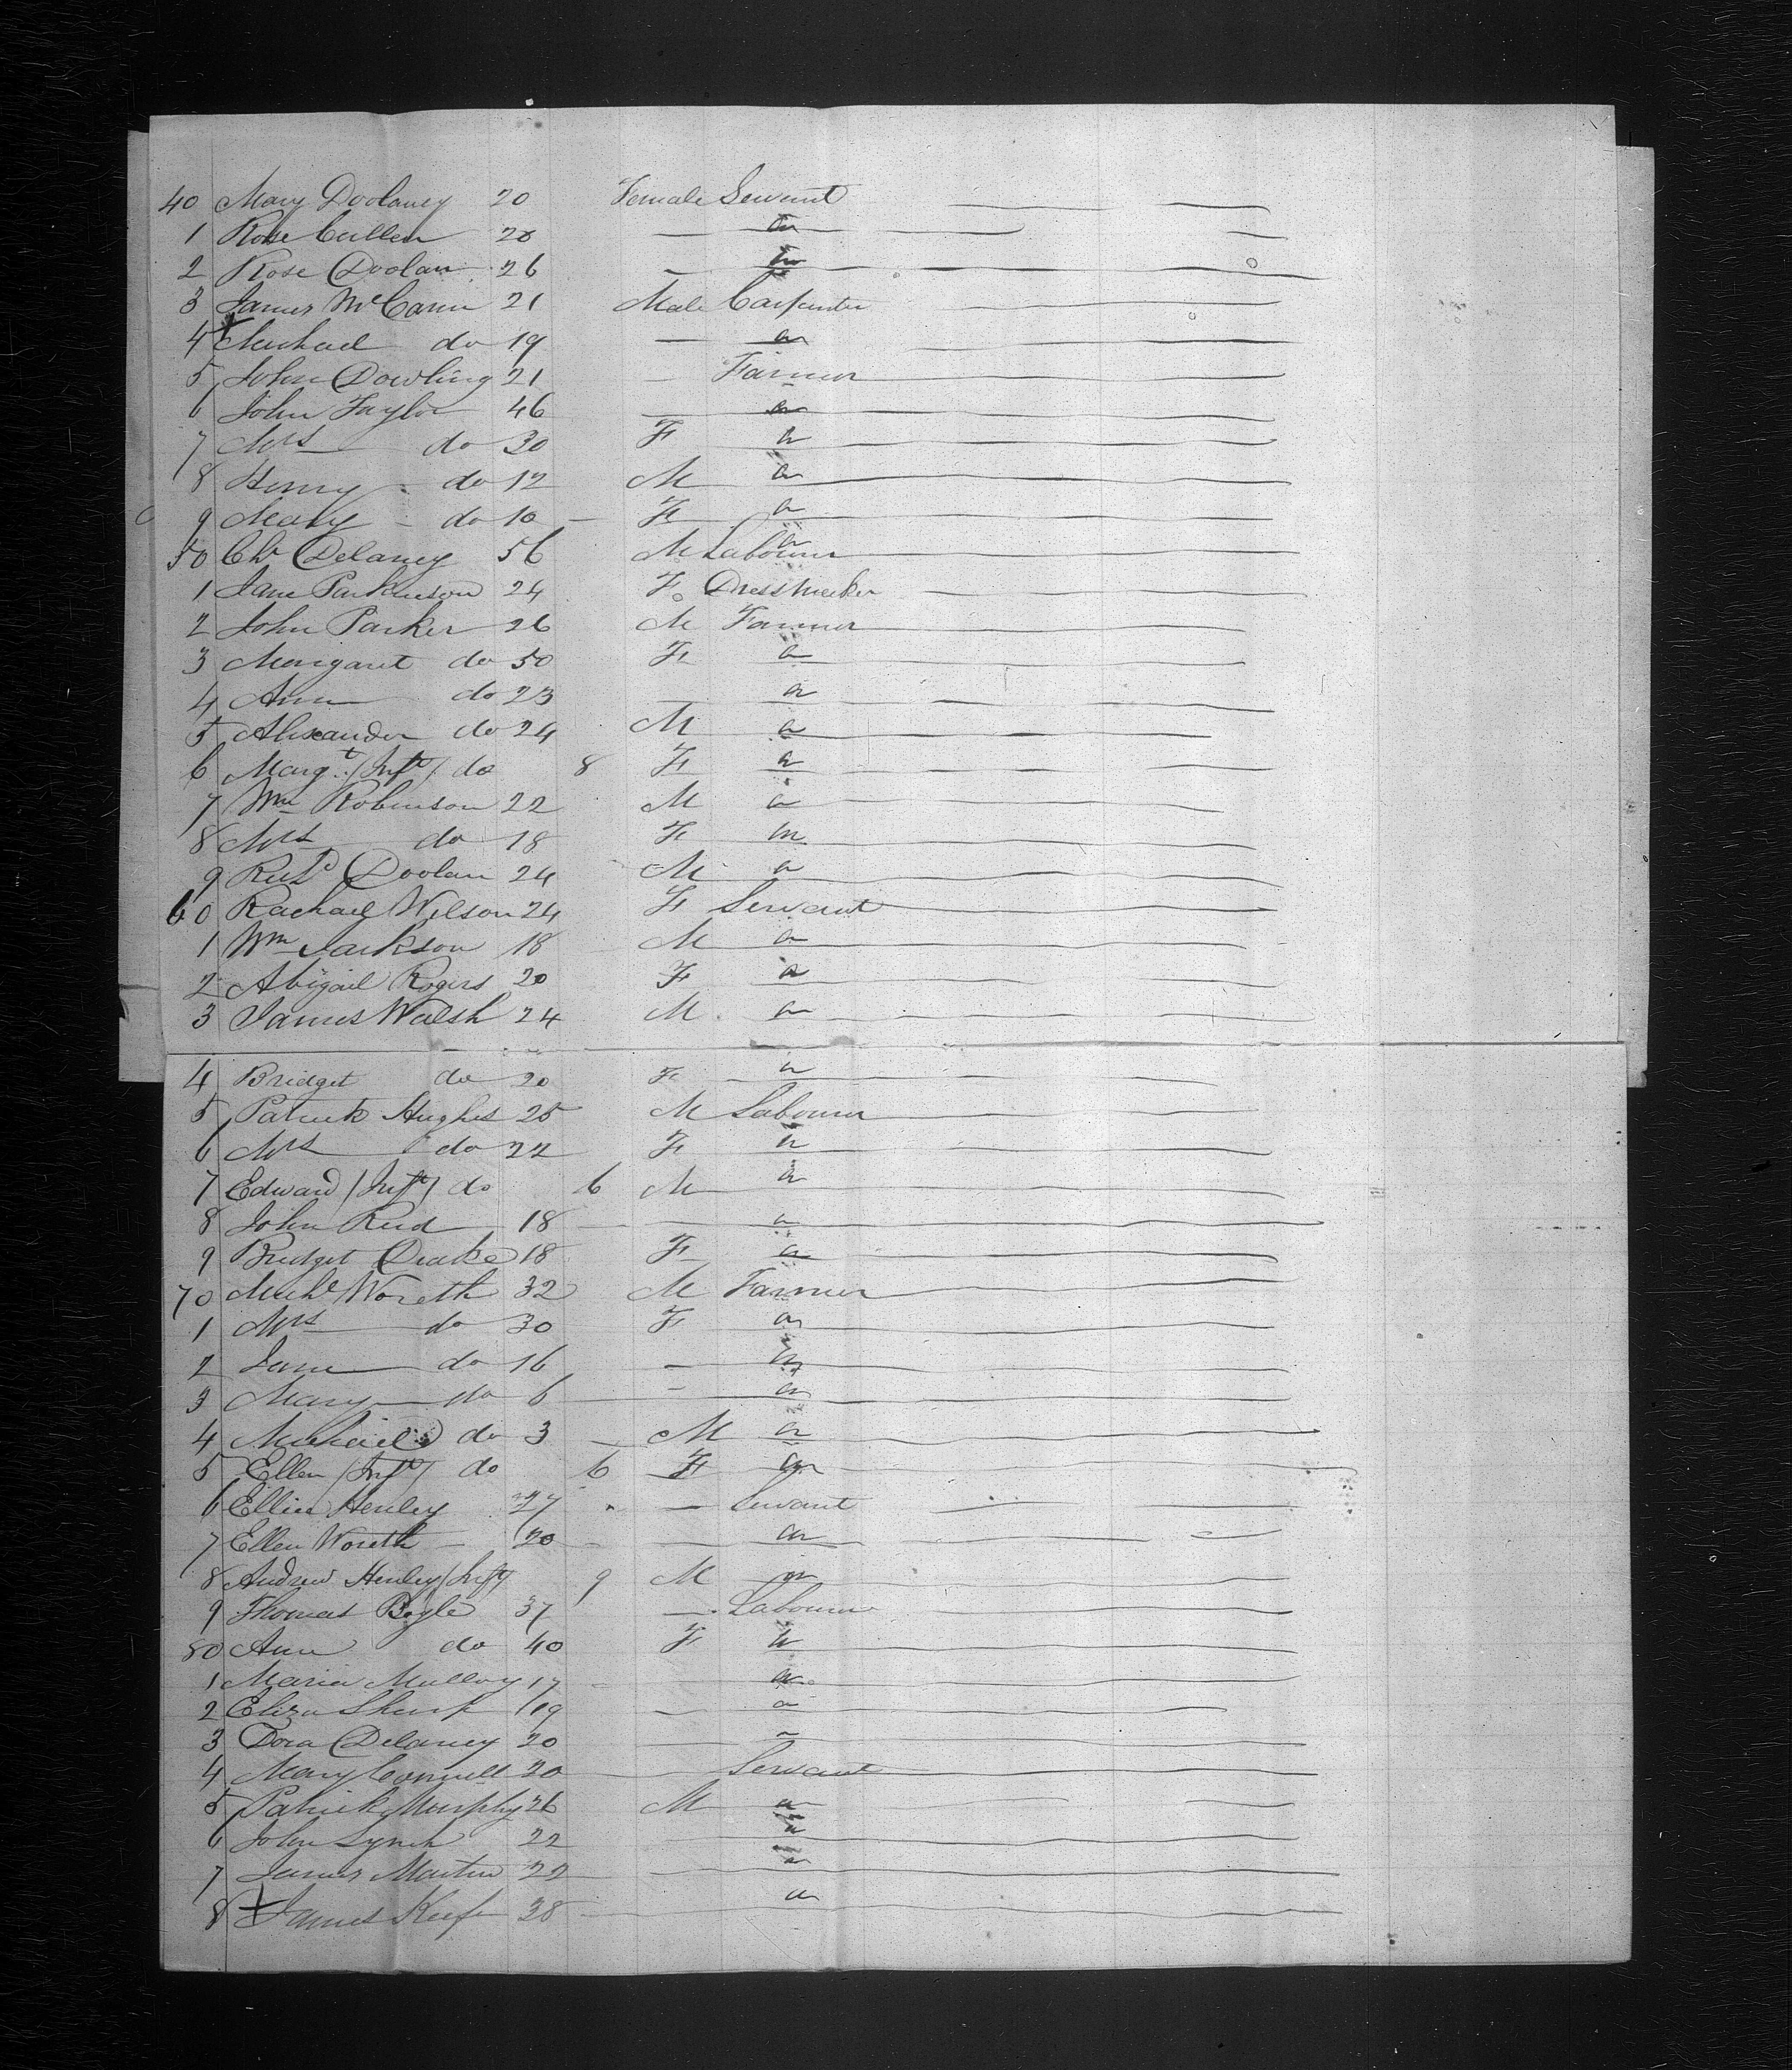 40 Mary Doolaney 20 Female Servant
1 Rose Cullen 20 — "
2 Rose Doolan 26 — "
3 James McCann 21 Male Carpenter
4 Michael do 19 — "
5 John Dowling 21 — Farmer
6 John Taylor 46 — "
7 Mrs do 30 F "
8 Henry do 12 M "
9 Mary do 10 F "
50 Chr Delaney 56 M Labourer
1 Jane Parkinson 24 F Dressmaker
2 John Parker 26 M Farmer
3 Margaret do 50 F "
4 Ann do 23 — "
5 Alexander do 24 M "
6 Margt (Inft) do 8 F "
7 Wm Robinson 22 M "
8 Mrs do 18 F "
9 Richd Doolan 24 M "
60 Rachael Wilson 24 F Servant
1 Wm Jackson 18 M "
2 Abigail Rogers 20 F "
3 James Walsh 24 M "
4 Bridget do 20 F "
5 Patrick Hughes 25 M Labourer
6 Mrs do 22 F "
7 Edward (Inft) do 6 M "
8 John Reid 18 — "
9 Bridget Drake 18 F "
70 Michl Woreth 32 M Farmer
1 Mrs do 30 F "
2 Jane do 16 — "
3 Mary do 6 — "
4 Michael do 3 M "
5 Ellen (Inft) do 6 F "
6 Ellen Henley 27 — Servant
7 Ellen Woreth 20 — "
8 Andrew Henley (Inft) 9 M "
9 Thomas Bogle 37 — Labourer
80 Ann do 40 F "
1 Maria Mulloy 17 — "
2 Eliza Sharp 19 — "
3 Dora Delaney 20 — "
4 Mary Connell 20 — Servant
5 Patrick Murphy 26 M "
6 John Lynch 22 — "
7 James Martin 22 — "
8 James Keefe 38 — "